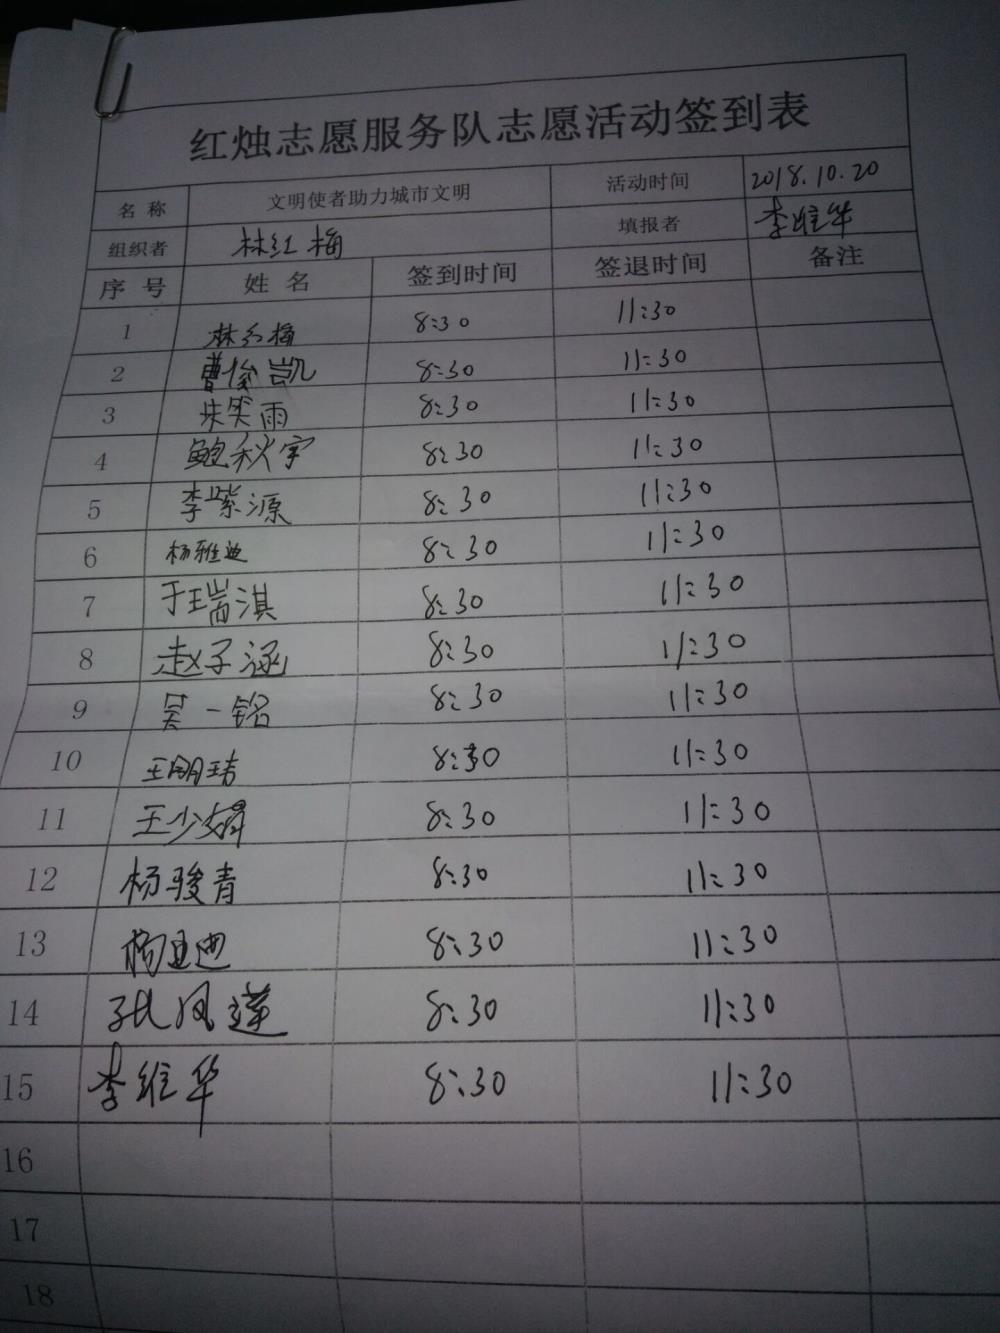 红烛志愿服务队志愿活动签到表
名 称 文明使者助力城市文明 活动时间 2018.10.20
组织者 林红梅 填报者 李维华
序 号 姓 名 签到时间 签退时间 备注
1 林红梅 8:30 11:30
2 曹俊凯 8:30 11:30
3 朱笑雨 8:30 11:30
4 鲍秋宇 8:30 11:30
5 李紫源 8:30 11:30
6 杨雅迪 8:30 11:30
7 于瑞淇 8:30 11:30
8 赵子涵 8:30 11:30
9 吴一铭 8:30 11:30
10 8:30 11:30
11 8:30 11:30
12 杨骏青 8:30 11:30
13 8:30 11:30
14 张凤莲 8:30 11:30
15 李维华 8:30 11:30
16
17
18